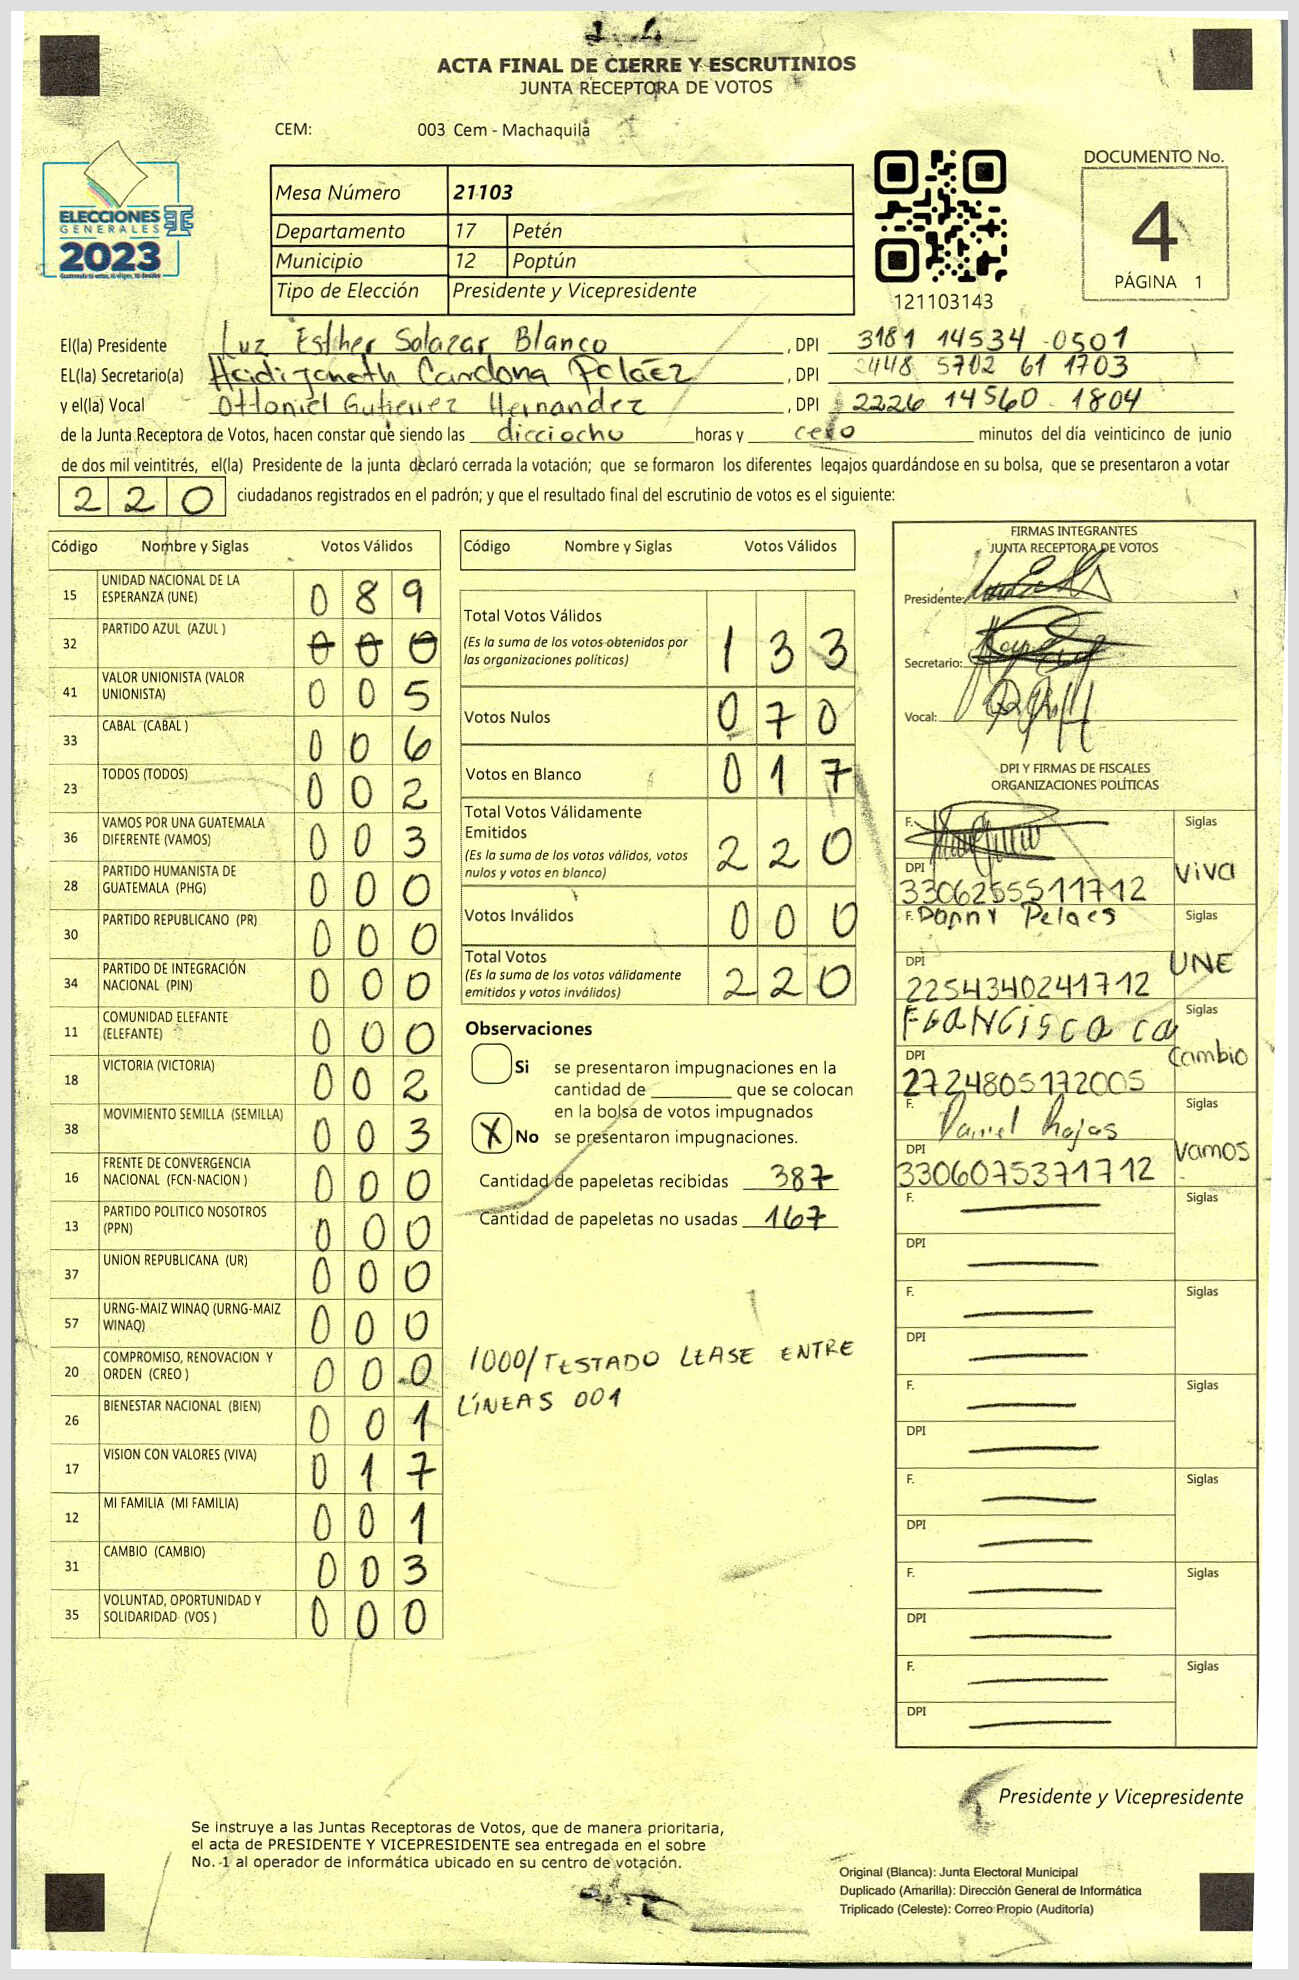 ACTA FINAL DE CIERRE Y ESCRUTINIOS
JUNTA RECEPTORA DE VOTOS
CEM: 003 Cem - Machaquila
ELECCIONES
GENERALES
2023
Mesa Número 21103
Departamento 17 Petén
Municipio 12 Poptún
Tipo de Elección Presidente y Vicepresidente
121103143
DOCUMENTO No.
4
PÁGINA 1
El(la) Presidente Luz Esther Salazar Blanco, DPI 3181 14534 0501
EL(la) Secretario(a) Heidi Janeth Cardona Peláez, DPI 2448 5702 61 1703
y el(la) Vocal Ottoniel Gutierrez Hernandez, DPI 2226 14560 1804
de la Junta Receptora de Votos, hacen constar que siendo las dicciocho horas y cero minutos del día veinticinco de junio
de dos mil veintitrés, el(la) Presidente de la junta declaró cerrada la votación; que se formaron los diferentes legajos guardándose en su bolsa, que se presentaron a votar
220 ciudadanos registrados en el padrón; y que el resultado final del escrutinio de votos es el siguiente:
Código Nombre y Siglas Votos Válidos
15 UNIDAD NACIONAL DE LA ESPERANZA (UNE) 0 8 9
32 PARTIDO AZUL (AZUL ) 0 0 0
41 VALOR UNIONISTA (VALOR UNIONISTA) 0 0 5
33 CABAL (CABAL ) 0 0 6
23 TODOS (TODOS) 0 0 2
36 VAMOS POR UNA GUATEMALA DIFERENTE (VAMOS) 0 0 3
28 PARTIDO HUMANISTA DE GUATEMALA (PHG) 0 0 0
30 PARTIDO REPUBLICANO (PR) 0 0 0
34 PARTIDO DE INTEGRACIÓN NACIONAL (PIN) 0 0 0
11 COMUNIDAD ELEFANTE (ELEFANTE) 0 0 0
18 VICTORIA (VICTORIA) 0 0 2
38 MOVIMIENTO SEMILLA (SEMILLA) 0 0 3
16 FRENTE DE CONVERGENCIA NACIONAL (FCN-NACION ) 0 0 0
13 PARTIDO POLITICO NOSOTROS (PPN) 0 0 0
37 UNION REPUBLICANA (UR) 0 0 0
57 URNG-MAIZ WINAQ (URNG-MAIZ WINAQ) 0 0 0
20 COMPROMISO, RENOVACION Y ORDEN (CREO ) 0 0 0
26 BIENESTAR NACIONAL (BIEN) 0 0 1
17 VISION CON VALORES (VIVA) 0 1 7
12 MI FAMILIA (MI FAMILIA) 0 0 1
31 CAMBIO (CAMBIO) 0 0 3
35 VOLUNTAD, OPORTUNIDAD Y SOLIDARIDAD (VOS ) 0 0 0
Código Nombre y Siglas Votos Válidos
Total Votos Válidos
(Es la suma de los votos obtenidos por
las organizaciones políticas) 1 3 3
Votos Nulos 0 7 0
Votos en Blanco 0 1 7
Total Votos Válidamente
Emitidos
(Es la suma de los votos válidos, votos
nulos y votos en blanco) 2 2 0
Votos Inválidos 0 0 0
Total Votos
(Es la suma de los votos válidamente
emitidos y votos inválidos) 2 2 0
Observaciones
Si se presentaron impugnaciones en la
cantidad de ________ que se colocan
en la bolsa de votos impugnados
X No se presentaron impugnaciones.
Cantidad de papeletas recibidas 387
Cantidad de papeletas no usadas 167
1000/TESTADO LEASE ENTRE
LÍNEAS 001
FIRMAS INTEGRANTES
JUNTA RECEPTORA DE VOTOS
Presidente:
Secretario:
Vocal:
DPI Y FIRMAS DE FISCALES
ORGANIZACIONES POLÍTICAS
F. Siglas
DPI VIVA
3306255511712
F. Danny Pelaes Siglas
DPI UNE
2254340241712
Francisca Ca Siglas
DPI Cambio
2724805172005
F. Daniel Rojas Siglas
DPI Vamos
3306075371712
F. Siglas
DPI
F. Siglas
DPI
F. Siglas
DPI
F. Siglas
DPI
F. Siglas
DPI
F. Siglas
DPI
Presidente y Vicepresidente
Se instruye a las Juntas Receptoras de Votos, que de manera prioritaria,
el acta de PRESIDENTE Y VICEPRESIDENTE sea entregada en el sobre
No. 1 al operador de informática ubicado en su centro de votación.
Original (Blanca): Junta Electoral Municipal
Duplicado (Amarilla): Dirección General de Informática
Triplicado (Celeste): Correo Propio (Auditoría)